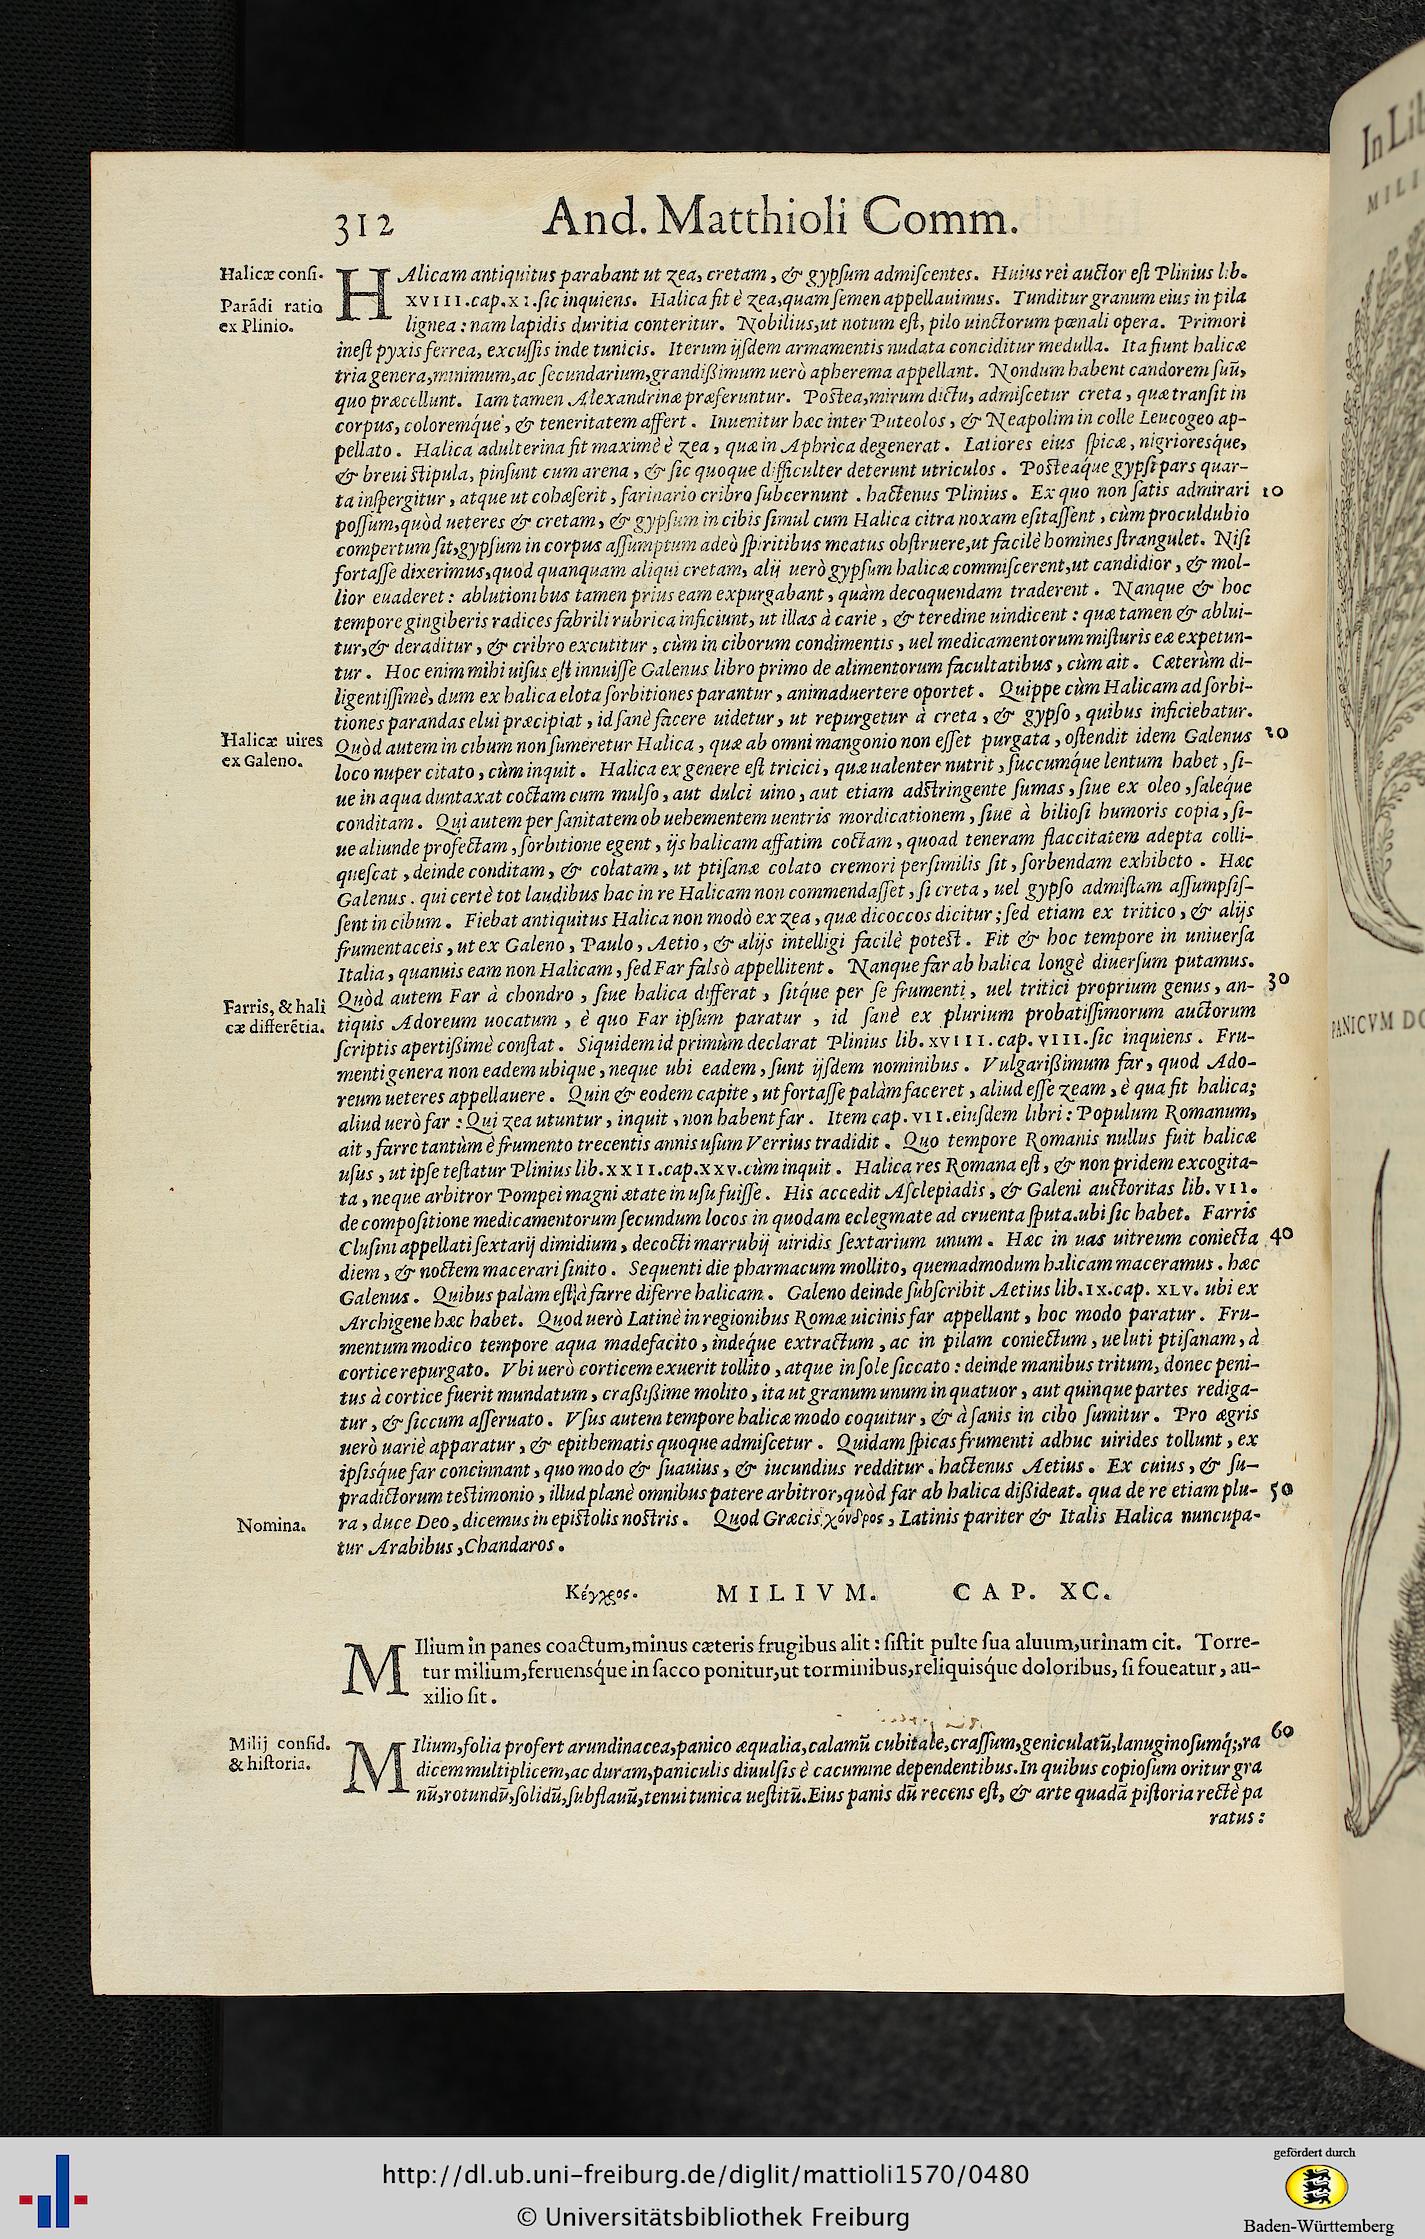 312 And. Matthioli Comm.
Halicæ consi-
Parādi ratio
ex Plinio.
HAlicam antiquitus parabant ut zea, cretam, & gypſum admiſcentes. Huius rei auctor eſt Plinius lib.
XVIII.cap.XI.ſic inquiens. Halica fit è zea,quam ſemen appellauimus. Tunditur granum eius in pila
lignea: nam lapidis duritia conteritur. Nobilius,ut notum eſt, pilo uinctorum pœnali opera. Primori
ineſt pyxis ferrea, excuſſis inde tunicis. Iterum ijſdem armamentis nudata conciditur medulla. Ita fiunt halicæ
tria genera,minimum,ac ſecundarium,grandißimum uerò apherema appellant. Nondum habent candorem ſuū,
quo præcellunt. Iam tamen Alexandrinæ præferuntur. Poſtea,mirum dictu, admiſcetur creta, quæ tranſit in
corpus, coloremq́ue, & teneritatem affert. Inuenitur hæc inter Puteolos, & Neapolim in colle Leucogeo ap-
pellato. Halica adulterina fit maximè è zea, quæ in Aphrica degenerat. Latiores eius ſpicæ, nigrioresque,
& breui ſtipula, pinſunt cum arena, & ſic quoque difficulter deterunt utriculos. Poſteáque gypſi pars quar-
ta inſpergitur, atque ut cohæſerit, farinario cribro ſubcernunt. hactenus Plinius. Ex quo non ſatis admirari 10
poſſum,quòd ueteres & cretam, & gypſum in cibis ſimul cum Halica citra noxam eſitaſſent, cùm proculdubio
compertum ſit,gypſum in corpus aſſumptum adeò ſpiritibus meatus obſtruere,ut facilè homines ſtrangulet. Niſi
fortaſſe dixerimus,quod quanquam aliqui cretam, alij uerò gypſum halicæ commiſcerent,ut candidior, & mol-
lior euaderet: ablutionibus tamen prius eam expurgabant, quàm decoquendam traderent. Nanque & hoc
tempore gingiberis radices fabrili rubrica inficiunt, ut illas à carie, & teredine uindicent: quæ tamen & ablui-
tur,& deraditur, & cribro excutitur, cùm in ciborum condimentis, uel medicamentorum miſturis eæ expetun-
tur. Hoc enim mihi uiſus eſt innuiſſe Galenus libro primo de alimentorum facultatibus, cùm ait. Cæterùm di-
ligentiſſimè, dum ex halica elota ſorbitiones parantur, animaduertere oportet. Quippe cùm Halicam ad ſorbi-
tiones parandas elui præcipiat, id ſanè facere uidetur, ut repurgetur à creta, & gypſo, quibus inficiebatur.
Halicæ uires
ex Galeno.
Quòd autem in cibum non ſumeretur Halica, quæ ab omni mangonio non eſſet purgata, oſtendit idem Galenus 20
loco nuper citato, cùm inquit. Halica ex genere eſt tricici, quæ ualenter nutrit, ſuccumq́ue lentum habet, ſi-
ue in aqua duntaxat coctam cum mulſo, aut dulci uino, aut etiam adſtringente ſumas, ſiue ex oleo, ſaleq́ue
conditam. Qui autem per ſanitatem ob uehementem uentris mordicationem, ſiue à bilioſi humoris copia, ſi-
ue aliunde profectam, ſorbitione egent, ijs halicam affatim coctam, quoad teneram flaccitatem adepta colli-
queſcat, deinde conditam, & colatam, ut ptiſanæ colato cremori perſimilis ſit, ſorbendam exhibeto. Hæc
Galenus. qui certè tot laudibus hac in re Halicam non commendaſſet, ſi creta, uel gypſo admiſtam aſſumpſiſ-
ſent in cibum. Fiebat antiquitus Halica non modò ex zea, quæ dicoccos dicitur; ſed etiam ex tritico, & alijs
frumentaceis, ut ex Galeno, Paulo, Aetio, & alijs intelligi facilè poteſt. Fit & hoc tempore in uniuerſa
Italia, quanuis eam non Halicam, ſed Far falsò appellitent. Nanque far ab halica longè diuerſum putamus.
Farris, & hali
cæ differētia.
Quòd autem Far à chondro, ſiue halica differat, ſitq́ue per ſe frumenti, uel tritici proprium genus, an- 30
tiquis Adoreum uocatum, è quo Far ipſum paratur, id ſanè ex plurium probatiſſimorum auctorum
ſcriptis apertißimè conſtat. Siquidem id primùm declarat Plinius lib. XVIII. cap. VIII. ſic inquiens. Fru-
menti genera non eadem ubique, neque ubi eadem, ſunt ijſdem nominibus. Vulgarißimum far, quod Ado-
reum ueteres appellauere. Quin & eodem capite, ut fortaſſe palàm faceret, aliud eſſe zeam, è qua fit halica;
aliud uerò far: Qui zea utuntur, inquit, non habent far. Item cap. VII. eiuſdem libri: Populum Romanum,
ait, farre tantùm è frumento trecentis annis uſum Verrius tradidit. Quo tempore Romanis nullus fuit halicæ
uſus, ut ipſe teſtatur Plinius lib. XXII.cap.XXV.cùm inquit. Halica res Romana eſt, & non pridem excogita-
ta, neque arbitror Pompei magni ætate in uſu fuiſſe. His accedit Aſclepiadis, & Galeni auctoritas lib. VII.
de compoſitione medicamentorum ſecundum locos in quodam eclegmate ad cruenta ſputa.ubi ſic habet. Farris
Cluſini appellati ſextarij dimidium, decocti marrubij uiridis ſextarium unum. Hæc in uas uitreum coniecta 40
diem, & noctem macerari ſinito. Sequenti die pharmacum mollito, quemadmodum halicam maceramus. hæc
Galenus. Quibus palàm eſt à farre diferre halicam. Galeno deinde ſubſcribit Aetius lib. IX.cap. XLV. ubi ex
Archigene hæc habet. Quod uerò Latinè in regionibus Romæ uicinis far appellant, hoc modo paratur. Fru-
mentum modico tempore aqua madefacito, indeq́ue extractum, ac in pilam coniectum, ueluti ptiſanam, à
cortice repurgato. Vbi uerò corticem exuerit tollito, atque in ſole ſiccato: deinde manibus tritum, donec peni-
tus à cortice fuerit mundatum, craßißime molito, ita ut granum unum in quatuor, aut quinque partes rediga-
tur, & ſiccum aſſeruato. Vſus autem tempore halicæ modo coquitur, & à ſanis in cibo ſumitur. Pro ægris
uerò uariè apparatur, & epithematis quoque admiſcetur. Quidam ſpicas frumenti adhuc uirides tollunt, ex
ipſisq́ue far concinnant, quo modo & ſuauius, & iucundius redditur. hactenus Aetius. Ex cuius, & ſu-
pradictorum teſtimonio, illud planè omnibus patere arbitror,quòd far ab halica dißideat. qua de re etiam plu- 50
Nomina.
ra, duce Deo, dicemus in epiſtolis noſtris. Quod Græcis χόνδρος, Latinis pariter & Italis Halica nuncupa-
tur Arabibus, Chandaros.
Κέγχρος. MILIVM. CAP. XC.
MIlium in panes coactum,minus cæteris frugibus alit: ſiſtit pulte ſua aluum,urinam cit. Torre-
tur milium,feruensq́ue in ſacco ponitur,ut torminibus,reliquisq́ue doloribus, ſi foueatur, au-
xilio ſit.
Milij conſid.
& hiſtoria.
MIlium,folia profert arundinacea,panico æqualia,calamū cubitale,craſſum,geniculatū,lanuginoſumq́;,ra 60
dicem multiplicem,ac duram,paniculis diuulſis è cacumine dependentibus.In quibus copioſum oritur gra
nū,rotundū,ſolidū,ſubflauū,tenui tunica ueſtitū.Eius panis dū recens eſt, & arte quadā piſtoria rectè pa
ratus:
In Lib
MILI
PANICVM DO
http://dl.ub.uni-freiburg.de/diglit/mattioli1570/0480
© Universitätsbibliothek Freiburg
gefördert durch
Baden-Württemberg